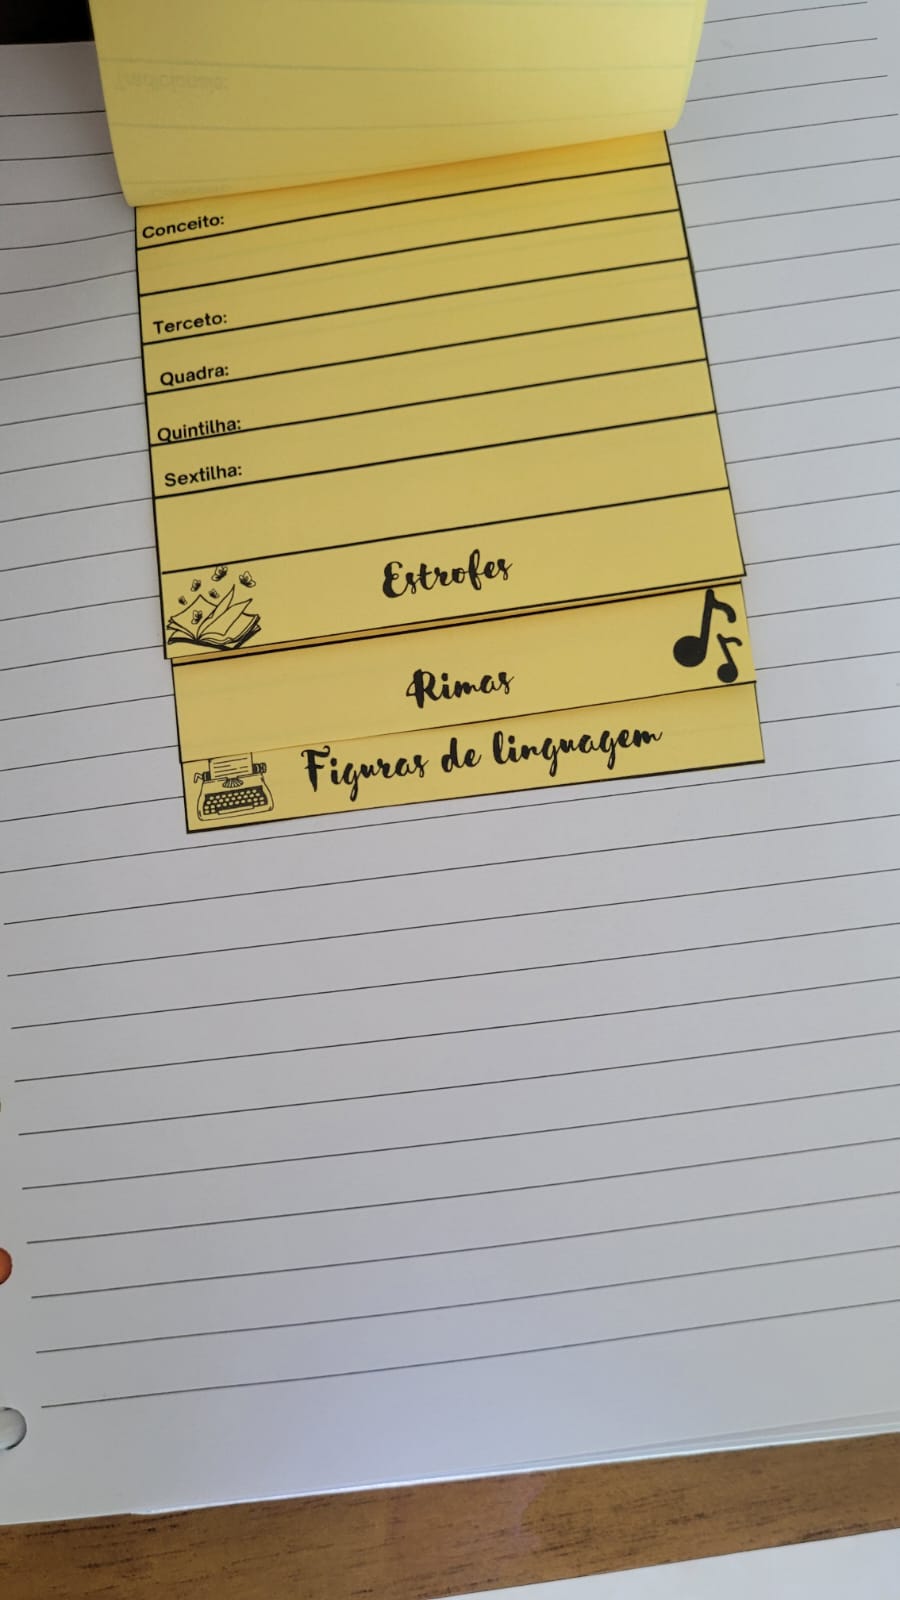 Tradicionais:
Conceito:
Terceto:
Quadra:
Quintilha:
Sextilha:
Estrofes
Rimas
Figuras de linguagem